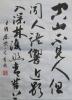 空山不見人但
聞人語響返影
入深林復照青苔
上